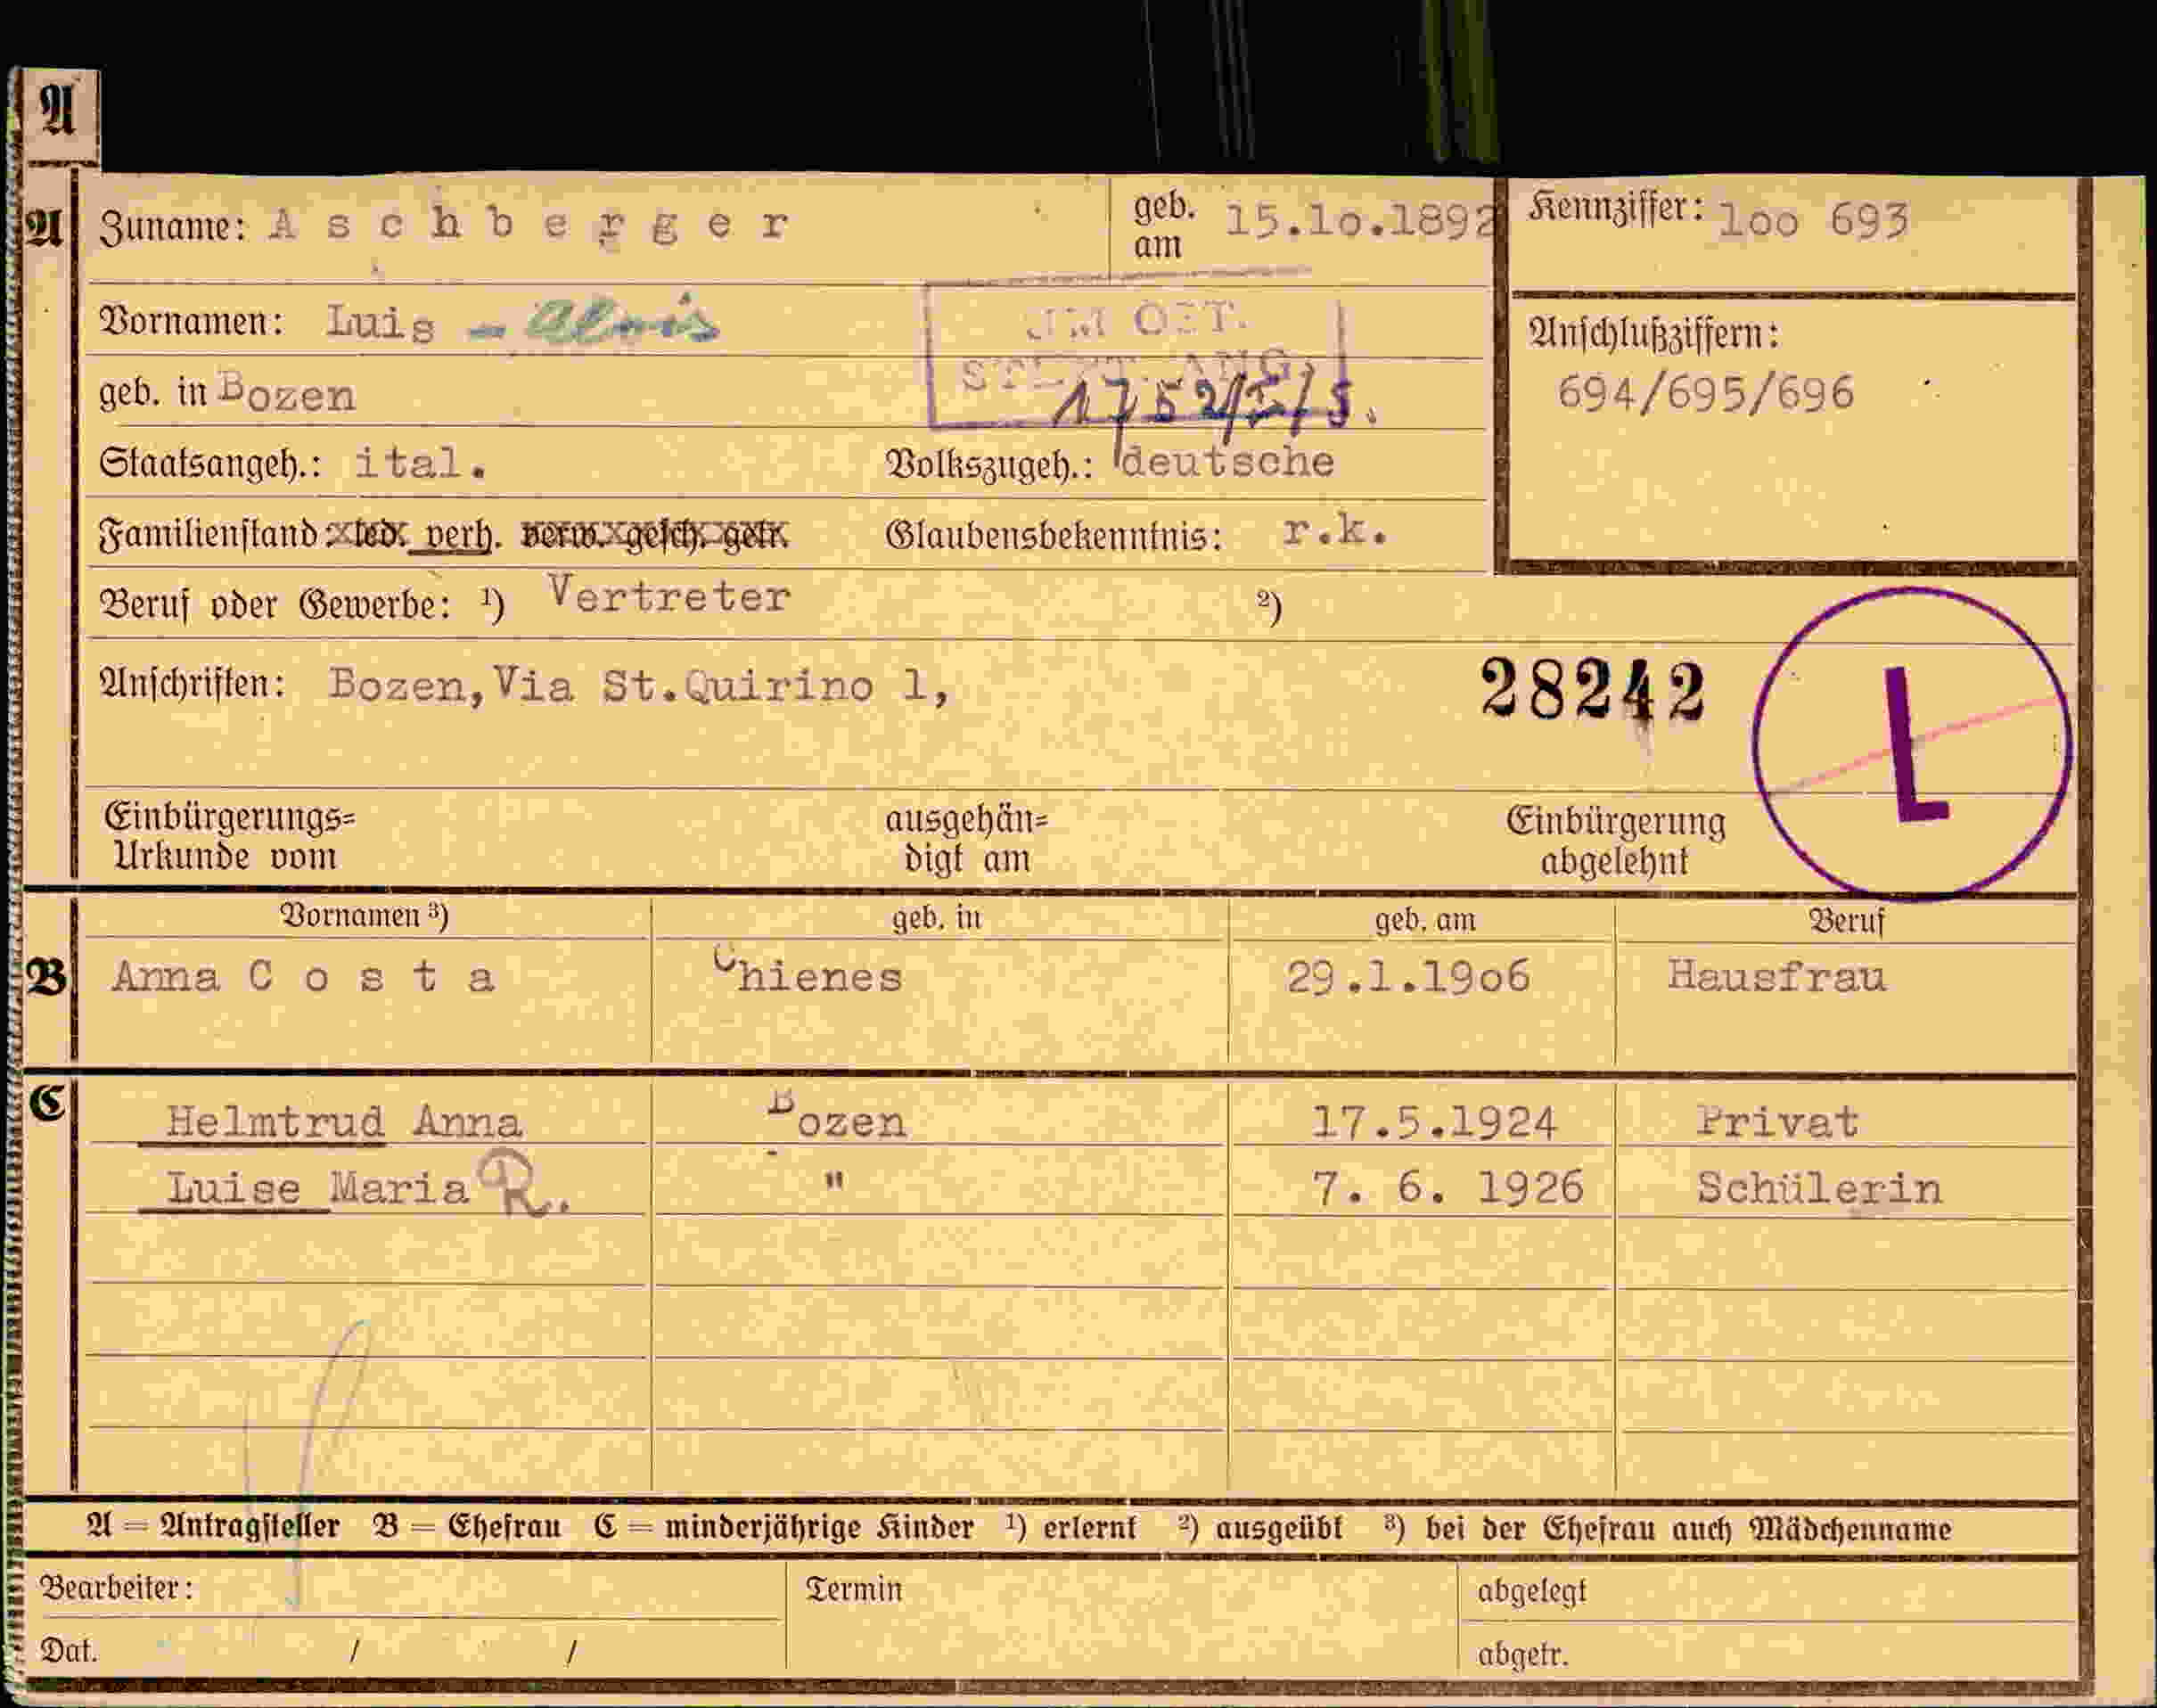 A
A Zuname: Aschberger geb. am 15.10.1892 Kennziffer: 100 693
Vornamen: Luis - Alois
Anschlußziffern:
geb. in Bozen 694/695/696
Staatsangeh.: ital. Volkszugeh.: deutsche
Familienstand: led. verh. verw. gesch. getr. Glaubensbekenntnis: r.k.
Beruf oder Gewerbe: ¹) Vertreter ²)
Anschriften: Bozen, Via St.Quirino 1, 28242 L
Einbürgerungs= Urkunde vom ausgehän= digt am Einbürgerung abgelehnt
Vornamen ³) geb. in geb. am Beruf
B Anna Costa Chienes 29.1.1906 Hausfrau
C Helmtrud Anna Bozen 17.5.1924 Privat
Luise Maria R. " 7. 6. 1926 Schülerin
A = Antragsteller B = Ehefrau C = minderjährige Kinder ¹) erlernt ²) ausgeübt ³) bei der Ehefrau auch Mädchenname
Bearbeiter: Termin abgelegt
Dat. / / abgetr.